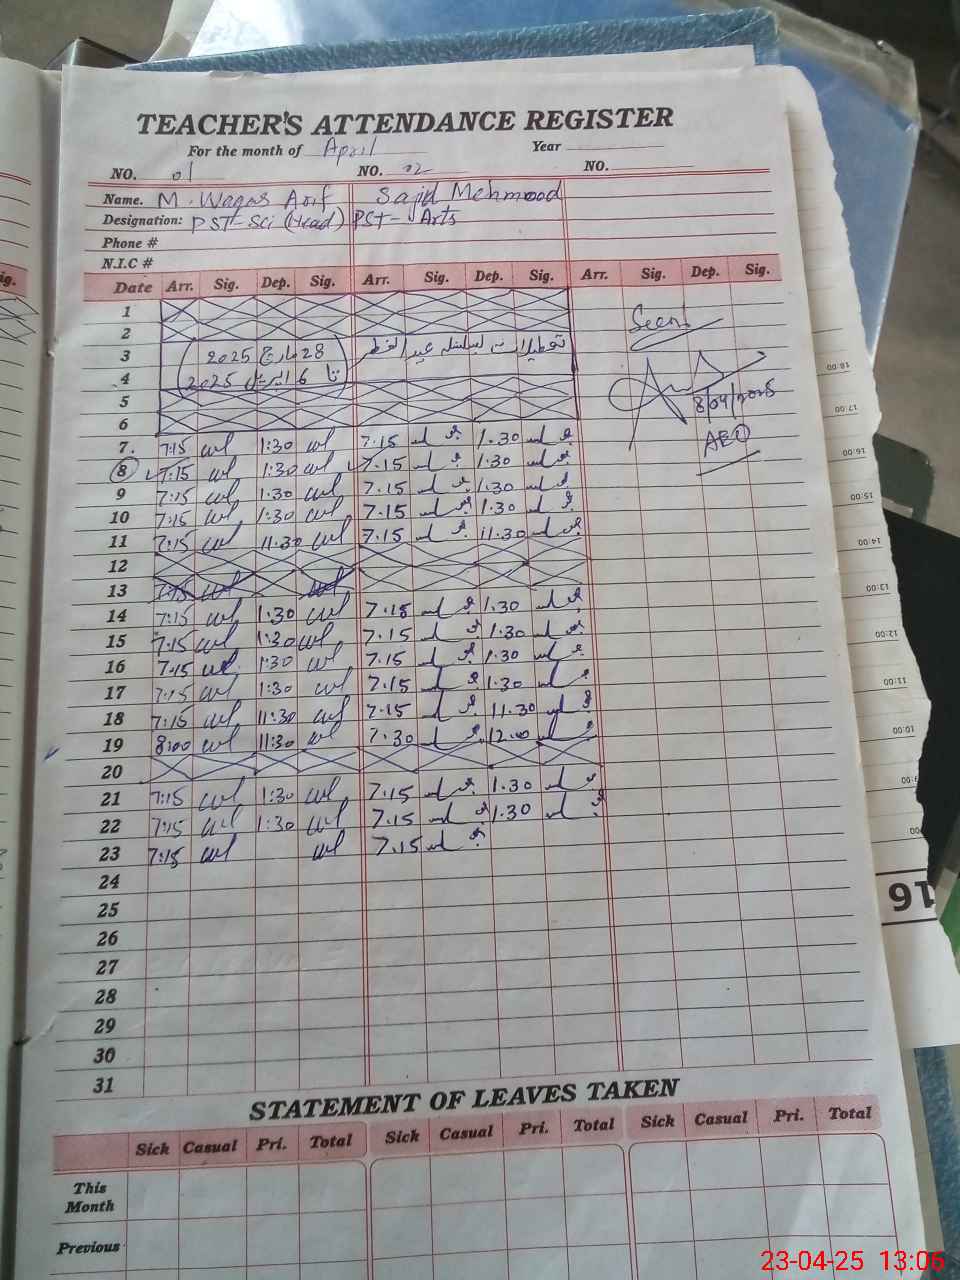 TEACHER'S ATTENDANCE REGISTER
For the month of April Year
NO. 01 NO. 02 NO.
Name. M. Waqas Arif Sajid Mehmood
Designation: PST-Sci (Head) PST-Arts
Phone #
N.I.C #
Date Arr. Sig. Dep. Sig. Arr. Sig. Dep. Sig. Arr. Sig. Dep. Sig.
1
2 Seen
3 (28 مارچ 2025 تعطیلات بسلسلہ عید الفطر
4 تا 6 اپریل 2025)
5 8/04/2025
6 AEO
7. 7:15 1:30 7.15 1.30
8 7:15 1:30 7.15 1.30
9 7:15 1:30 7.15 1.30
10 7:15 1:30 7.15 1.30
11 7:15 11.30 7.15 11.30
12
13 7:15
14 7:15 1:30 7.15 1.30
15 7:15 1:30 7.15 1.30
16 7:15 1:30 7.15 1.30
17 7:15 1:30 7.15 1.30
18 7:15 11:30 7.15 11.30
19 8:00 11:30 7.30 12.00
20
21 7:15 1:30 7.15 1.30
22 7:15 1:30 7.15 1.30
23 7:15 7.15
24
25
26
27
28
29
30
31
STATEMENT OF LEAVES TAKEN
Sick Casual Pri. Total Sick Casual Pri. Total Sick Casual Pri. Total
This
Month
Previous
ig.
18:00
17:00
16:00
15:00
14:00
13:00
12:00
11:00
10:00
16
23-04-25 13:06